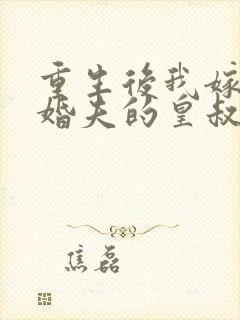 重生後我嫁
婚夫的皇叔
焦磊